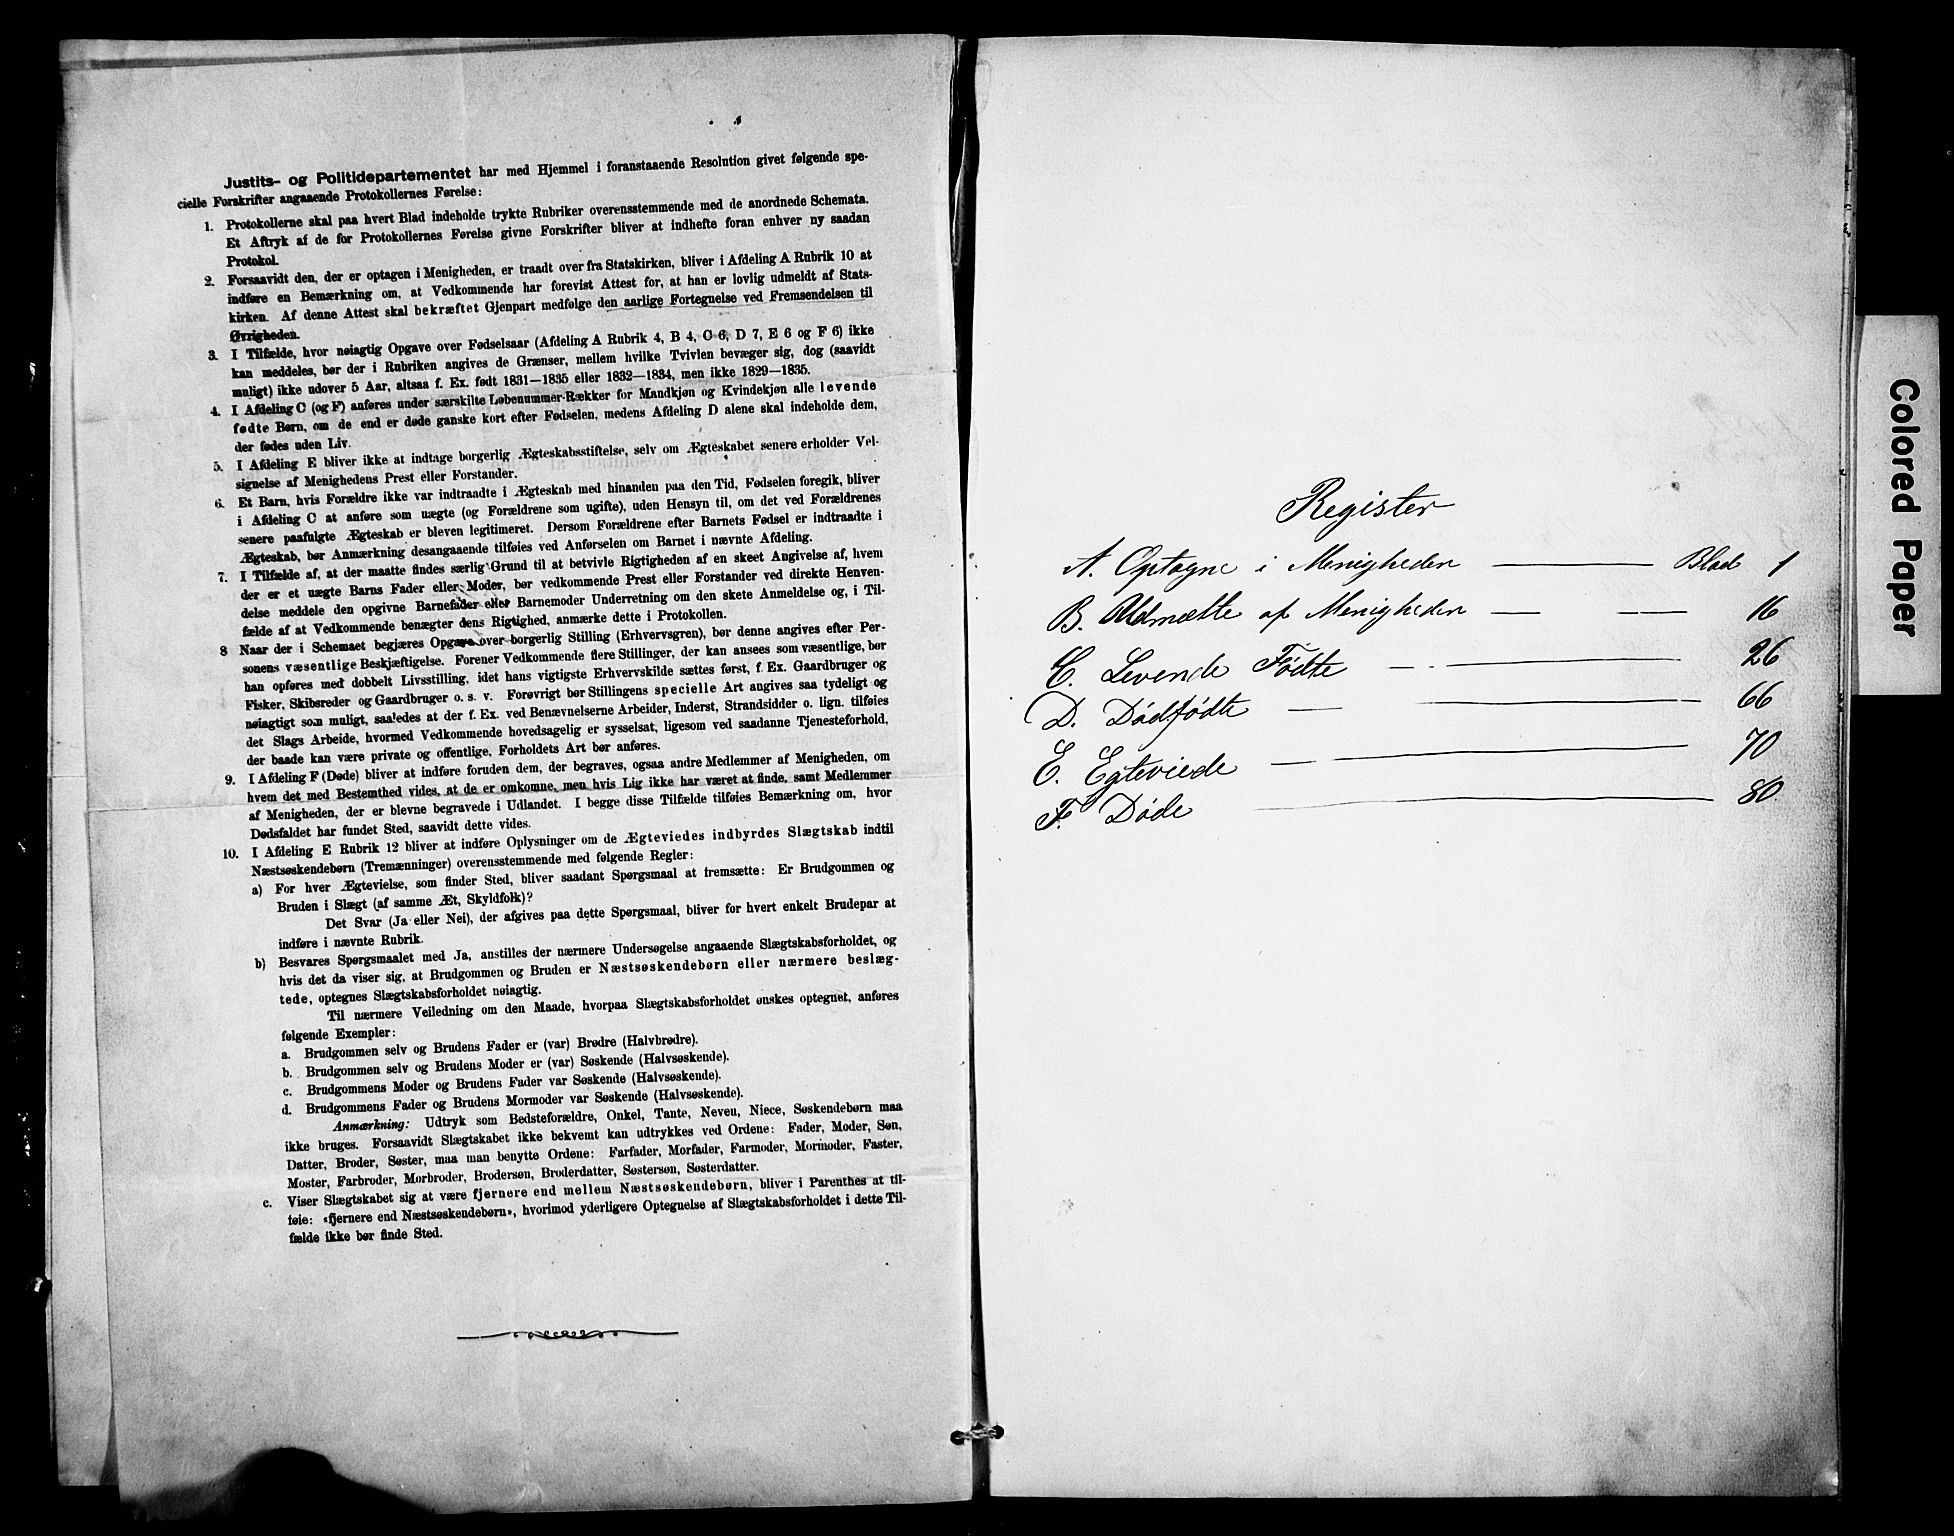 Justits- og Politidepartementet har med Hjemmel i foranstaaende Resolution givet følgende spe-
cielle Forskrifter angaaende Protokollernes Førelse:
1. Protokollerne skal paa hvert Blad indeholde trykte Rubriker overensstemmende med de anordnede Schemata.
Et Aftryk af de for Protokollernes Førelse givne Forskrifter bliver at indhefte foran enhver ny saadan
Protokol.
2. Forsaavidt den, der er optagen i Menigheden, er traadt over fra Statskirken, bliver i Afdeling A Rubrik 10 at
indføre en Bemærkning om, at Vedkommende har forevist Attest for, at han er lovlig udmeldt af Stats-
kirken. Af denne Attest skal bekræftet Gjenpart medfølge den aarlige Fortegnelse ved Fremsendelsen til
Øvrigheden.
3. I Tilfælde, hvor nøiagtig Opgave over Fødselsaar (Afdeling A Rubrik 4, B 4, C 6, D 7, E 6 og F 6) ikke
kan meddeles, bør der i Rubriken angives de Grænser, mellem hvilke Tvivlen bevæger sig, dog (saavidt
muligt) ikke udover 5 Aar, altsaa f. Ex. født 1831—1835 eller 1832—1834, men ikke 1829—1835.
4. I Afdeling C (og F) anføres under særskilte Løbenummer-Rækker for Mandkjøn og Kvindekjøn alle levende
fødte Børn, om de end er døde ganske kort efter Fødselen, medens Afdeling D alene skal indeholde dem,
der fødes uden Liv.
5. I Afdeling E bliver ikke at indtage borgerlig Ægteskabsstiftelse, selv om Ægteskabet senere erholder Vel-
signelse af Menighedens Prest eller Forstander.
6. Et Barn, hvis Forældre ikke var indtraadte i Ægteskab med hinanden paa den Tid, Fødselen foregik, bliver
i Afdeling C at anføre som uægte (og Forældrene som ugifte), uden Hensyn til, om det ved Forældrenes
senere paafulgte Ægteskab er bleven legitimeret. Dersom Forældrene efter Barnets Fødsel er indtraadte i
Ægteskab, bør Anmærkning desangaaende tilføies ved Anførselen om Barnet i nævnte Afdeling.
7. I Tilfælde af, at der maatte findes særlig Grund til at betvivle Rigtigheden af en skeet Angivelse af, hvem
der er et uægte Barns Fader eller Moder, bør vedkommende Prest eller Forstander ved direkte Henven-
delse meddele den opgivne Barnefader eller Barnemoder Underretning om den skete Anmeldelse og, i Til-
fælde af at Vedkommende benægter dens Rigtighed, anmærke dette i Protokollen.
8 Naar der i Schemaet begjæres Opgave over borgerlig Stilling (Erhvervsgren), bør denne angives efter Per-
sonens væsentlige Beskjæftigelse. Forener Vedkommende flere Stillinger, der kan ansees som væsentlige, bør
han opføres med dobbelt Livsstilling, idet hans vigtigste Erhvervskilde sættes først, f. Ex. Gaardbruger og
Fisker, Skibsreder og Gaardbruger o. s. v. Forøvrigt bør Stillingens specielle Art angives saa tydeligt og
nøiagtigt som muligt, saaledes at der f. Ex. ved Benævnelserne Arbeider, Inderst, Strandsidder o. lign. tilføies
det Slags Arbeide, hvormed Vedkommende hovedsagelig er sysselsat, ligesom ved saadanne Tjenesteforhold,
der baade kan være private og offentlige, Forholdets Art bør anføres.
9. I Afdeling F (Døde) bliver at indføre foruden dem, der begraves, ogsaa andre Medlemmer af Menigheden, om
hvem det med Bestemthed vides, at de er omkomne, men hvis Lig ikke har været at finde, samt Medlemmer
af Menigheden, der er blevne begravede i Udlandet. I begge disse Tilfælde tilføies Bemærkning om, hvor
Dødsfaldet har fundet Sted, saavidt dette vides.
10. I Afdeling E Rubrik 12 bliver at indføre Oplysninger om de Ægteviedes indbyrdes Slægtskab indtil
Næstsøskendebørn (Tremænninger) overensstemmende med følgende Regler:
a) For hver Ægtevielse, som finder Sted, bliver saadant Spørgsmaal at fremsætte: Er Brudgommen og
Bruden i Slægt (af samme Æt, Skyldfolk)?
Det Svar (Ja eller Nei), der afgives paa dette Spørgsmaal, bliver for hvert enkelt Brudepar at
indføre i nævnte Rubrik.
b) Besvares Spørgsmaalet med Ja, anstilles der nærmere Undersøgelse angaaende Slægtskabsforholdet, og
hvis det da viser sig, at Brudgommen og Bruden er Næstsøskendebørn eller nærmere beslæg-
tede, optegnes Slægtskabsforholdet nøiagtig.
Til nærmere Veiledning om den Maade, hvorpaa Slægtskabsforholdet ønskes optegnet, anføres
følgende Exempler:
a. Brudgommen selv og Brudens Fader er (var) Brødre (Halvbrødre).
b. Brudgommen selv og Brudens Moder er (var) Søskende (Halvsøskende).
c. Brudgommens Moder og Brudens Fader var Søskende (Halvsøskende).
d. Brudgommens Fader og Brudens Mormoder var Søskende (Halvsøskende).
Anmærkning: Udtryk som Bedsteforældre, Onkel, Tante, Neveu, Niece, Søskendebørn maa
ikke bruges. Forsaavidt Slægtskabet ikke bekvemt kan udtrykkes ved Ordene: Fader, Moder, Søn,
Datter, Broder, Søster, maa man benytte Ordene: Farfader, Morfader, Farmoder, Mormoder, Faster,
Moster, Farbroder, Morbroder, Brodersøn, Broderdatter, Søstersøn, Søsterdatter.
c. Viser Slægtskabet sig at være fjernere end mellem Næstsøskendebørn, bliver i Parenthes at til-
føie: «fjernere end Næstsøskendebørn», hvorimod yderligere Optegnelse af Slægtskabsforholdet i dette Til-
fælde ikke bør finde Sted.
Register
A. Optagne i Menigheden — Blad 1
B. Udmældte af Menigheden — — 16
C. Levende Fødte — — 26
D. Dødfødte — — 66
E. Egteviede — — 70
F. Døde — 80.
Colored Paper